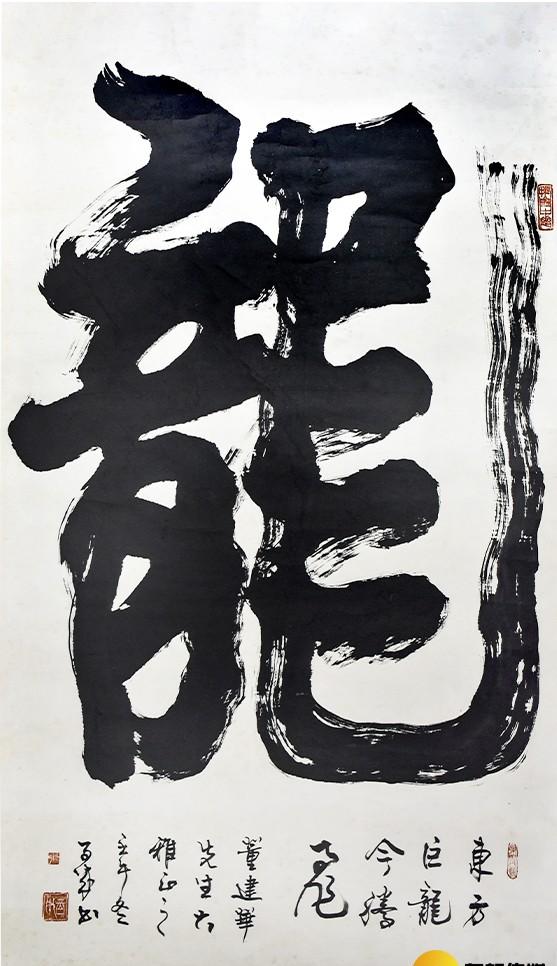 龍
東方
巨龍
今騰
飛
董建華
先生大
雅正之
壬午冬